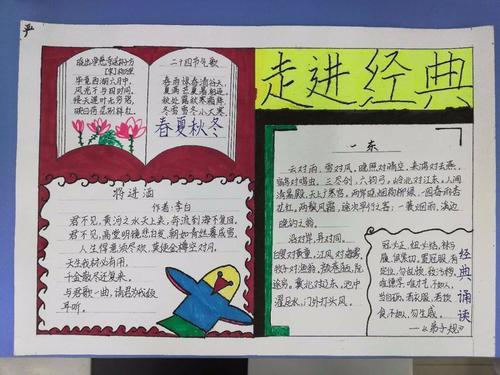 严
晓出净慈寺送林子方
[宋]杨万里
毕竟西湖六月中,
风光不与四时同,
接天莲叶无穷碧,
映日荷花别样红.
二十四节气歌
春雨惊春清谷天,
夏满芒夏暑相连,
秋处露秋寒霜降,
冬雪雪冬小大寒
春夏秋冬
走进经典
将进酒
作者:李白
君不见,黄河之水天上来,奔流到海不复回,
君不见,高堂明镜悲白发,朝如青丝暮成雪,
人生得意须尽欢,莫使金樽空对月,
天生我材必有用,
千金散尽还复来,
与君歌一曲,请君为我倾
耳听.
一东
云对雨,雪对风,晚照对晴空,来鸿对去燕,
宿鸟对鸣虫,三尺剑,六钧弓,岭北对江东,人间
清暑殿,天上广寒宫,两岸晓烟杨柳绿,一园春雨杏
花红,两鬓风霜,途次早行之客,一蓑烟雨,溪边
晚钓之翁.
沿对革,异对同,
白叟对黄童,江风对海雾,
牧子对渔翁,颜巷陋,阮
途穷,冀北对辽东,池中
濯足水,门外打头风.
冠必正,纽必结,袜与
履,俱紧切,置冠服,有
定位,勿乱顿,致污秽,
唯德学,唯才艺,不如人,
当自砺,若衣服,若饮
食,不如人,勿生戚.
—《弟子规》
经典诵读